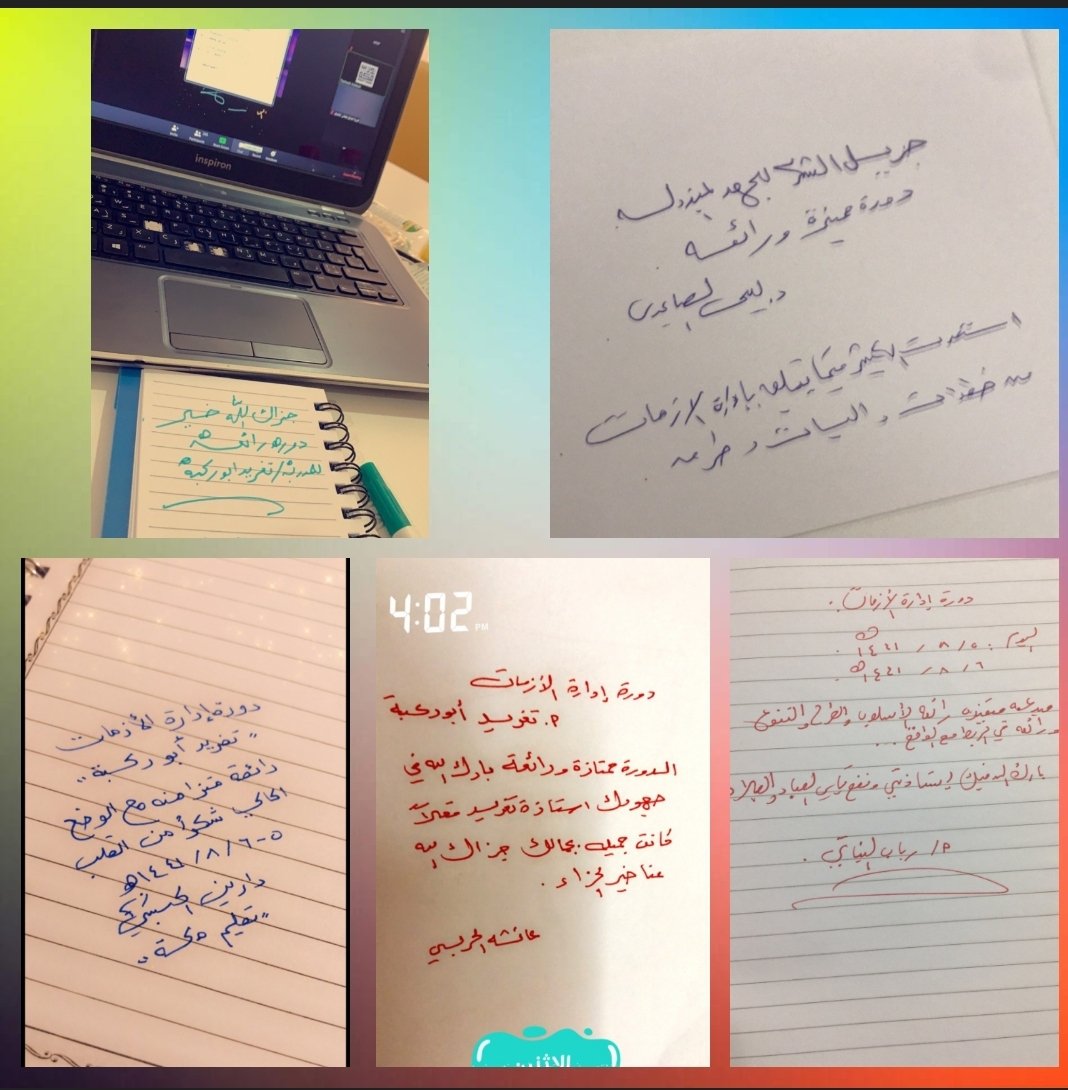 inspiron
جزاك الله خير
دوره رائعه
المدربة/تغريد ابو ركبه
جزيل الشكر للجهد المبذول
دورة مميزة ورائعه
د. ليلى الصاعدي
استفدت الكثير فيما يتعلق بادارة الازمات
من خطوات واليات و
دورة إدارة الأزمات
"تغريد أبو ركبة"
رائعة متزامنه مع الوضع
الحالي شكراً من القلب
٥-٦/٨/١٤٤١هـ
دارين
"تعليم مكة"
4:02 PM
دورة إدارة الأزمات
م. تغريد أبوركبة
الدورة ممتازة ورائعة بارك الله في
جهودك استاذة تغريد فعلاً
كانت جميله بجمالك جزاك الله
عنا خير الجزاء.
عائشه الحربي
الاثنين
دورة إدارة الأزمات.
اليوم: ٥/ ٨/ ١٤٤١هـ.
٦/ ٨/ ١٤٤١هـ.
رائعه الأسلوب والطرح والتنوع
ورائعه في الربط مع الواقع...
بارك الله فيك استاذتي ونفع بك العباد والبلاد
م/ رباب